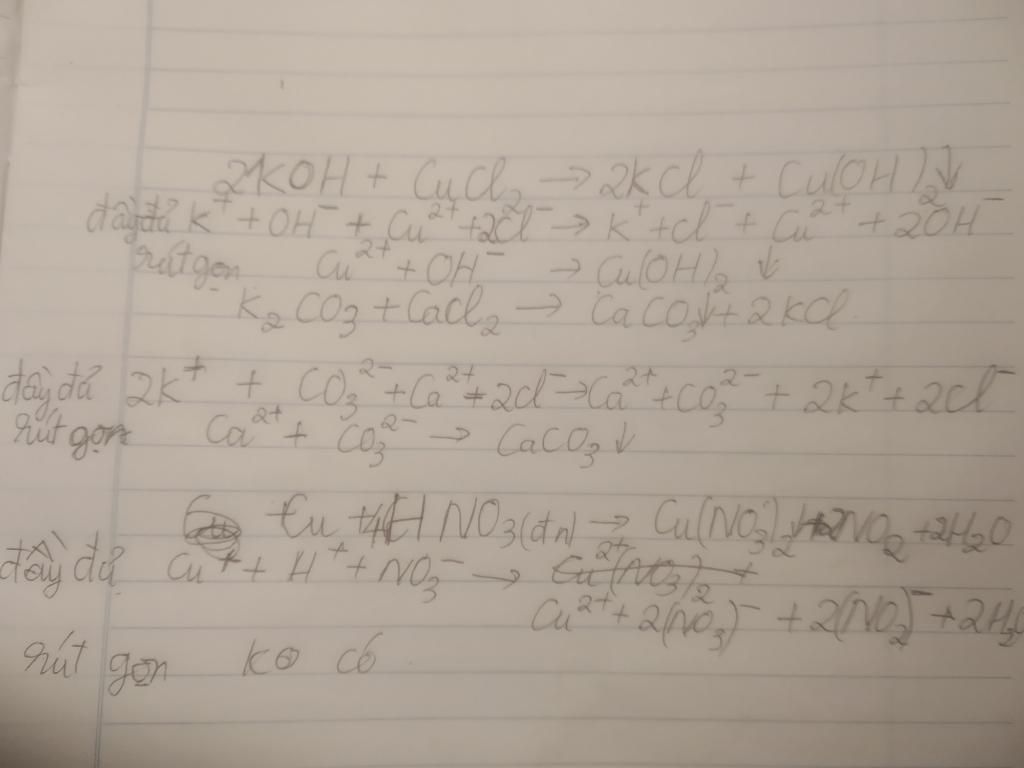 2KOH + CuCl₂ → 2KCl + Cu(OH)₂↓
đầy đủ K⁺ + OH⁻ + Cu²⁺ + 2Cl⁻ → K⁺ + Cl⁻ + Cu²⁺ + 2OH⁻
rút gọn Cu²⁺ + OH⁻ → Cu(OH)₂ ↓
K₂CO₃ + CaCl₂ → CaCO₃↓ + 2KCl
đầy đủ 2K⁺ + CO₃²⁻ + Ca²⁺ + 2Cl⁻ → Ca²⁺ + CO₃²⁻ + 2K⁺ + 2Cl⁻
rút gọn Ca²⁺ + CO₃²⁻ → CaCO₃↓
Cu + 4HNO₃(đn) → Cu(NO₃)₂ + 2NO₂ + 2H₂O
đầy đủ Cu⁺ + H⁺ + NO₃⁻ → Cu²⁺(NO₃)₂ +
Cu²⁺ + 2(NO₃)⁻ + 2(NO₂)⁻ + 2H₂O
rút gọn ko có